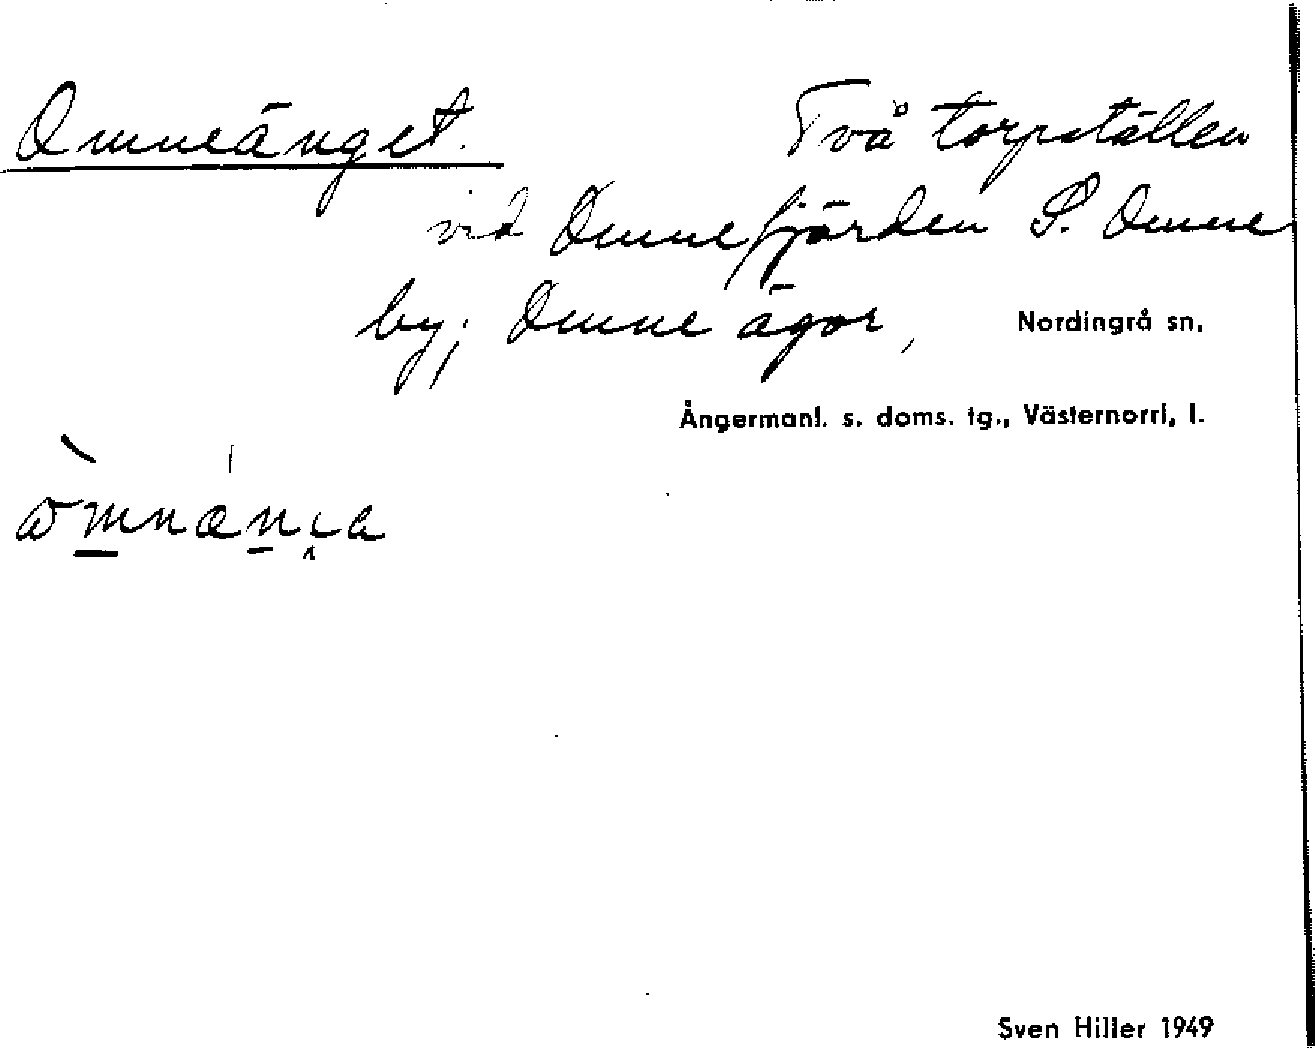 Omneänget. Två torpställen
vid Omnefjärden S. Omne
by; Omne ägor, Nordingrå sn.
Ångermanl. s. doms. tg., Västernorrl. l.
Sven Hiller 1949